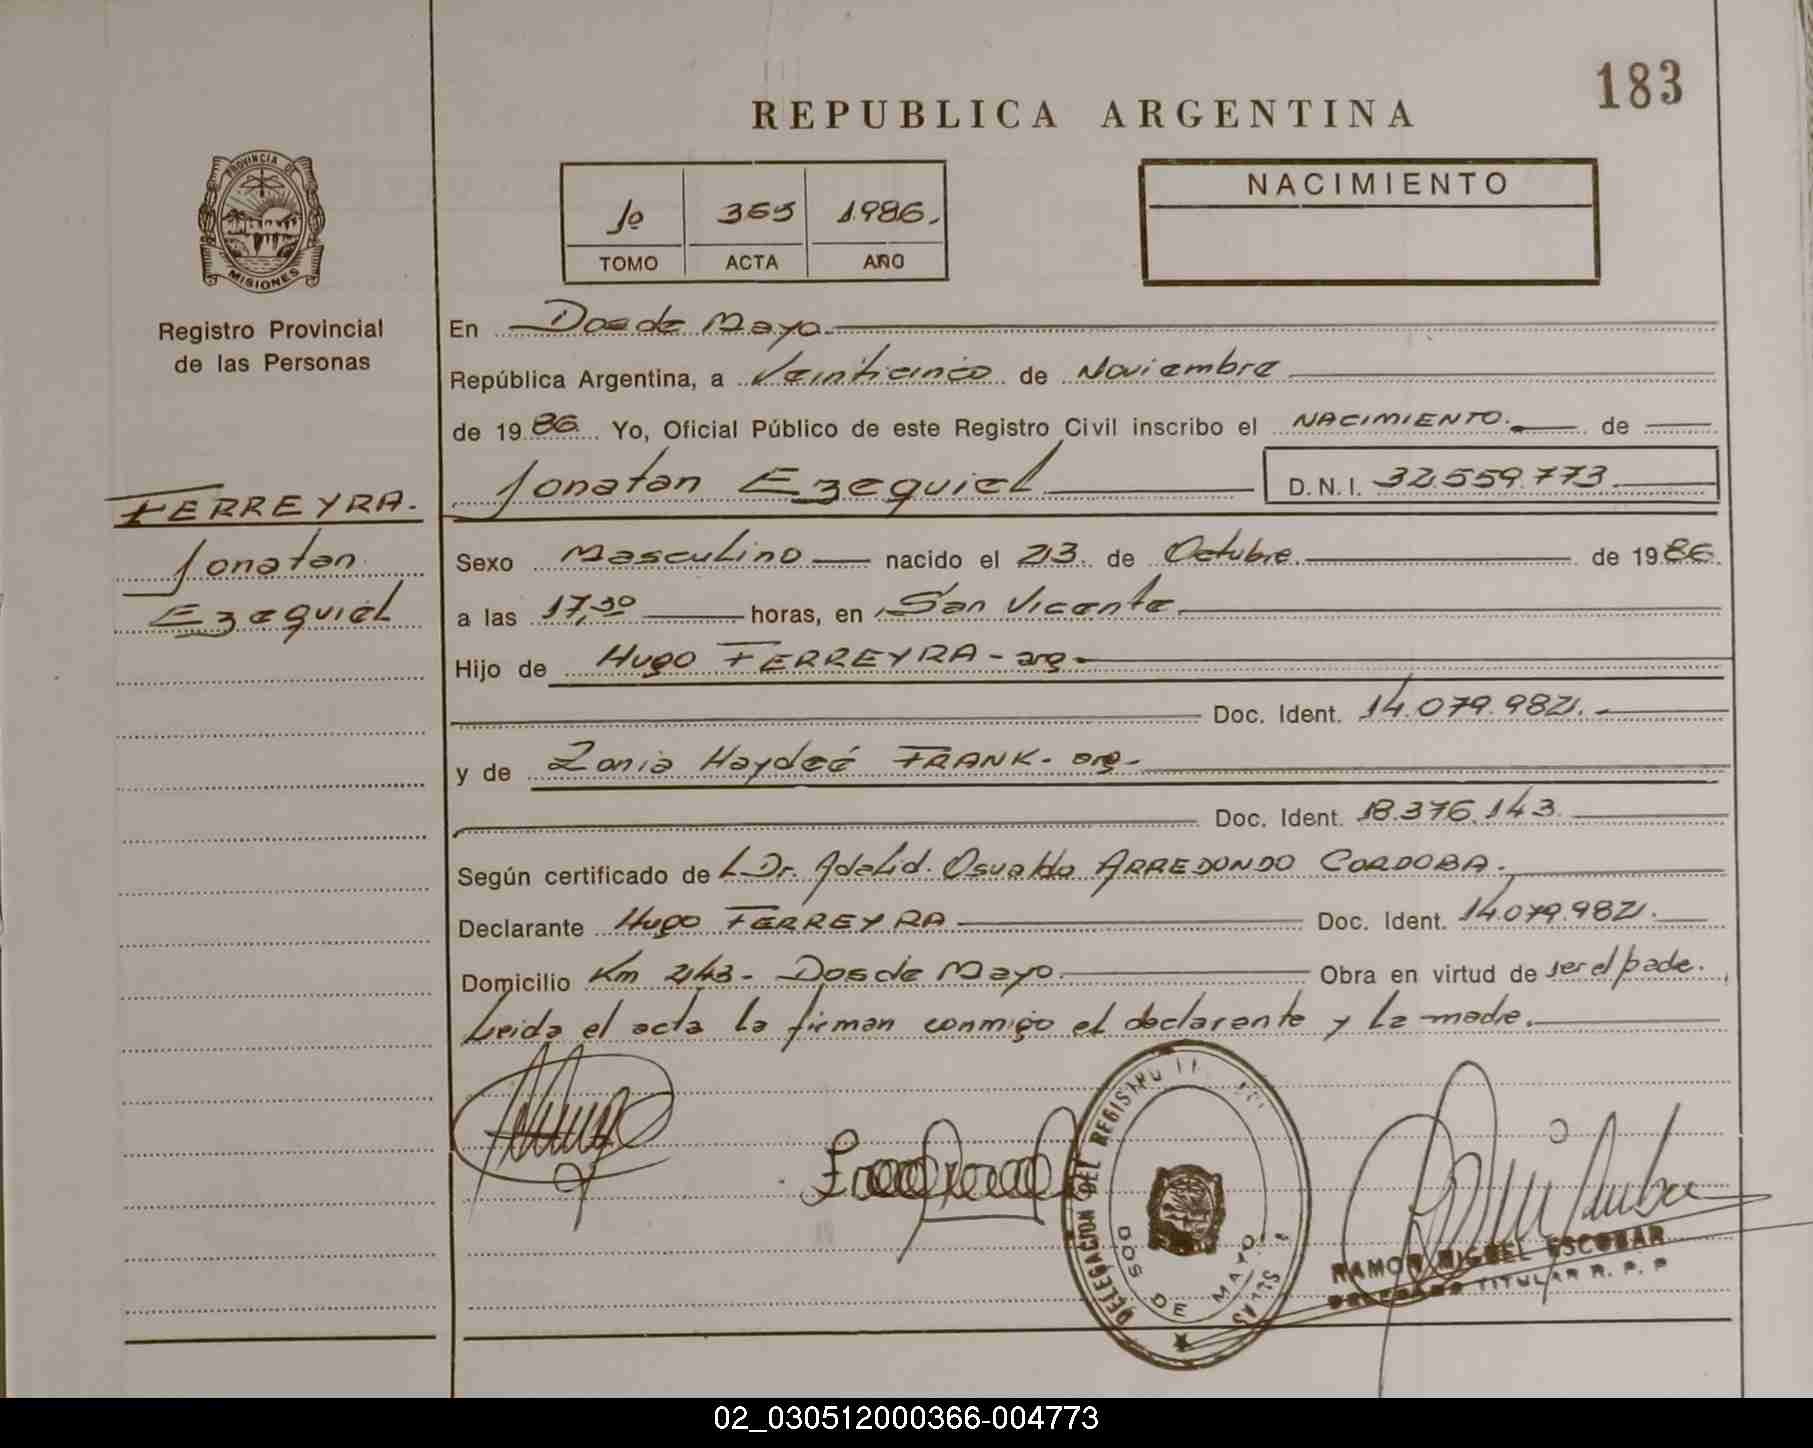 183
REPUBLICA ARGENTINA
PROVINCIA DE
MISIONES
Registro Provincial
de las Personas
1º 365 1986.
TOMO ACTA AÑO
NACIMIENTO
En Dos de Mayo.
República Argentina, a Veinticinco de Noviembre
de 1986 Yo, Oficial Público de este Registro Civil inscribo el NACIMIENTO. de
Jonatan Ezequiel D.N.I. 32.559.773
FERREYRA.
Jonatan
Ezequiel
Sexo Masculino nacido el 23 de Octubre. de 1986
a las 17,30 horas, en San Vicente
Hijo de Hugo FERREYRA - arg-
Doc. Ident. 14.079.982.
y de Zonia Haydeé FRANK - arg-
Doc. Ident. 18.376.143
Según certificado de L Dr. Adelid. Osvaldo ARREDONDO CORDOBA.
Declarante Hugo FERREYRA Doc. Ident. 14.079.982.
Domicilio Km 243 - Dos de Mayo. Obra en virtud de ser el padre.
Leida el acta la firman conmigo el declarante y la madre.
DELEGACION DEL REGISTRO
DOS DE MAYO
RAMON MIGUEL ESCOBAR
DELEGADO TITULAR R. P. P
02_030512000366-004773